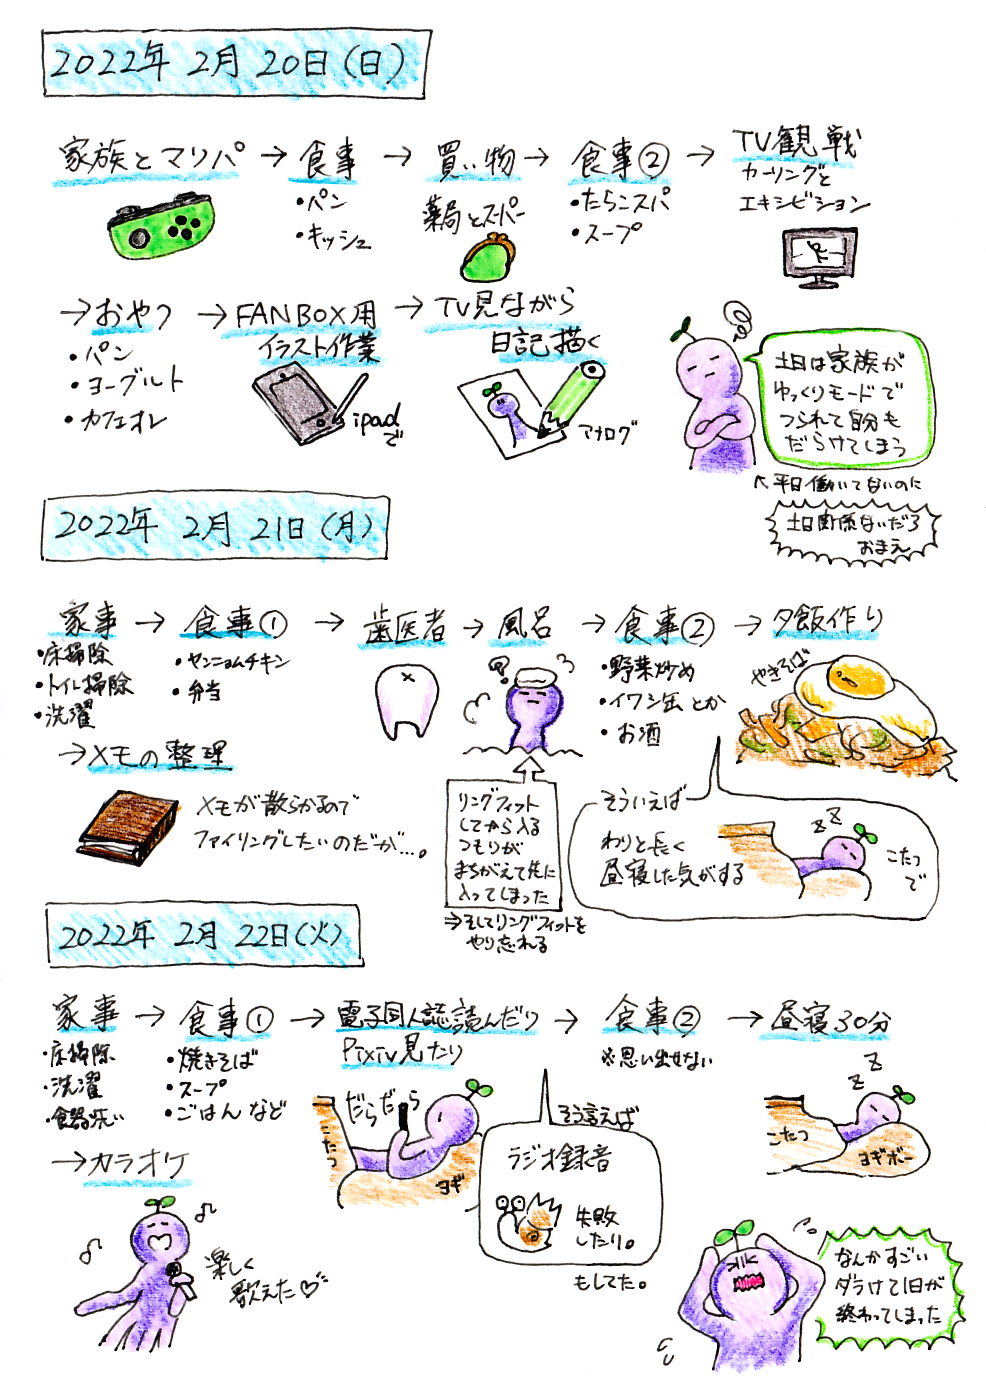 2022年 2月 20日(日)
家族とマリパ → 食事 → 買い物 → 食事② → TV観戦
・パン
・キッシュ
薬局とスーパー
・たらこスパ
・スープ
カーリングと
エキシビション
→ おやつ → FANBOX用
イラスト作業
→ TV見ながら
日記描く
・パン
・ヨーグルト
・カフェオレ
ipad
で
アナログ
土日は家族が
ゆっくりモードで
つられて自分も
だらけてしまう
↖平日働いてないのに
土日関係ないだろ
おまえ
2022年 2月 21日(月)
家事 → 食事① → 歯医者 → 風呂 → 食事② → 夕飯作り
・床掃除
・トイレ掃除
・洗濯
・ヤンニョムチキン
・弁当
・野菜炒め
・イワシ缶とか
・お酒
やきそば
→ メモの整理
メモが散らかるので
ファイリングしたいのだが…。
リングフィット
してから入る
つもりが
まちがえて先に
入ってしまった
⇒そしてリングフィットを
やり忘れる
そういえば
わりと長く
昼寝した気がする
zz
こたつ
で
2022年 2月 22日(火)
家事 → 食事① → 電子同人誌読んだり
Pixiv見たり
→ 食事② → 昼寝30分
・床掃除
・洗濯
・食器洗い
・焼きそば
・スープ
・ごはんなど
※思い出せない
だらだら
こたつ
ヨギ
そう言えば
ラジオ録音
失敗
したり。
もしてた。
zzz
こたつ
ヨギボー
→ カラオケ
楽しく
歌えた♡
なんかすごい
ダラけて1日が
終わってしまった